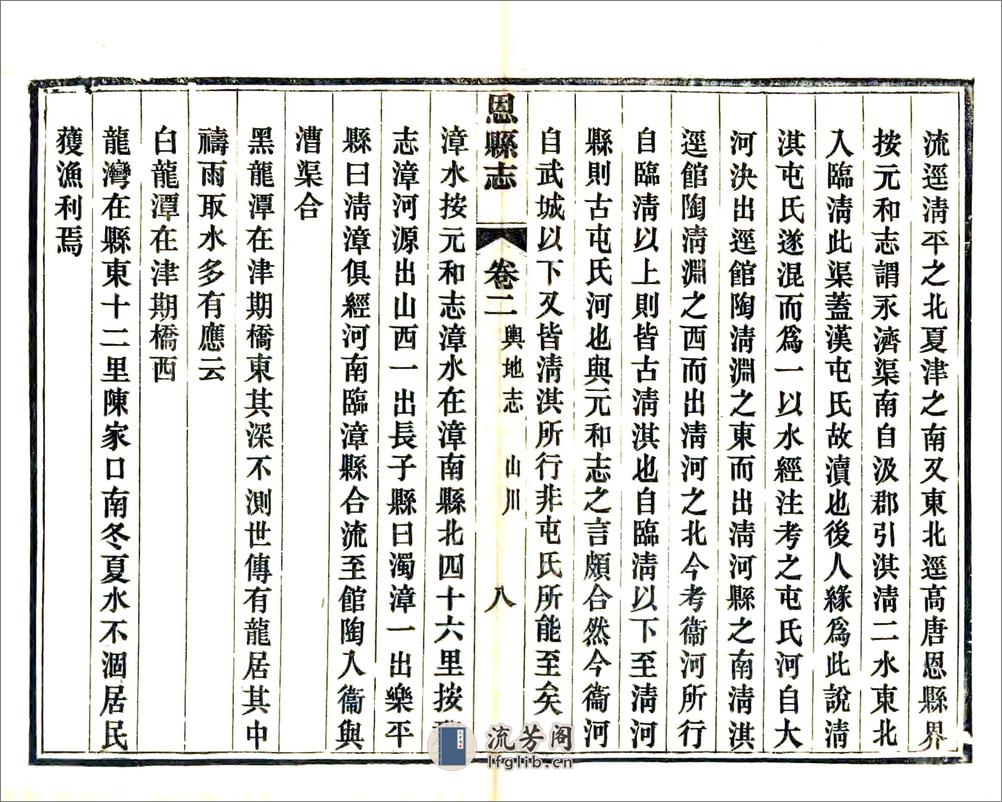 流逕清平之北夏津之南又東北逕高唐恩縣界
按元和志謂永濟渠南自汲郡引淇清二水東北
入臨清此渠蓋漢屯氏故瀆也後人緣爲此說清
淇屯氏遂混而爲一以水經注考之屯氏河自大
河決出逕館陶清淵之東而出清河縣之南清淇
逕館陶清淵之西而出清河之北今考衞河所行
自臨清以上則皆古清淇也自臨清以下至清河
縣則古屯氏河也與元和志之言頗合然今衞河
自武城以下又皆清淇所行非屯氏所能至矣
恩縣志 卷二 輿地志 山川 八
漳水按元和志漳水在漳南縣北四十六里按
志漳河源出山西一出長子縣曰濁漳一出樂平
縣曰清漳俱經河南臨漳縣合流至館陶入衞與
漕渠合
黑龍潭在津期橋東其深不測世傳有龍居其中
禱雨取水多有應云
白龍潭在津期橋西
龍灣在縣東十二里陳家口南冬夏水不涸居民
獲漁利焉
流芳阁
lfglib.cn